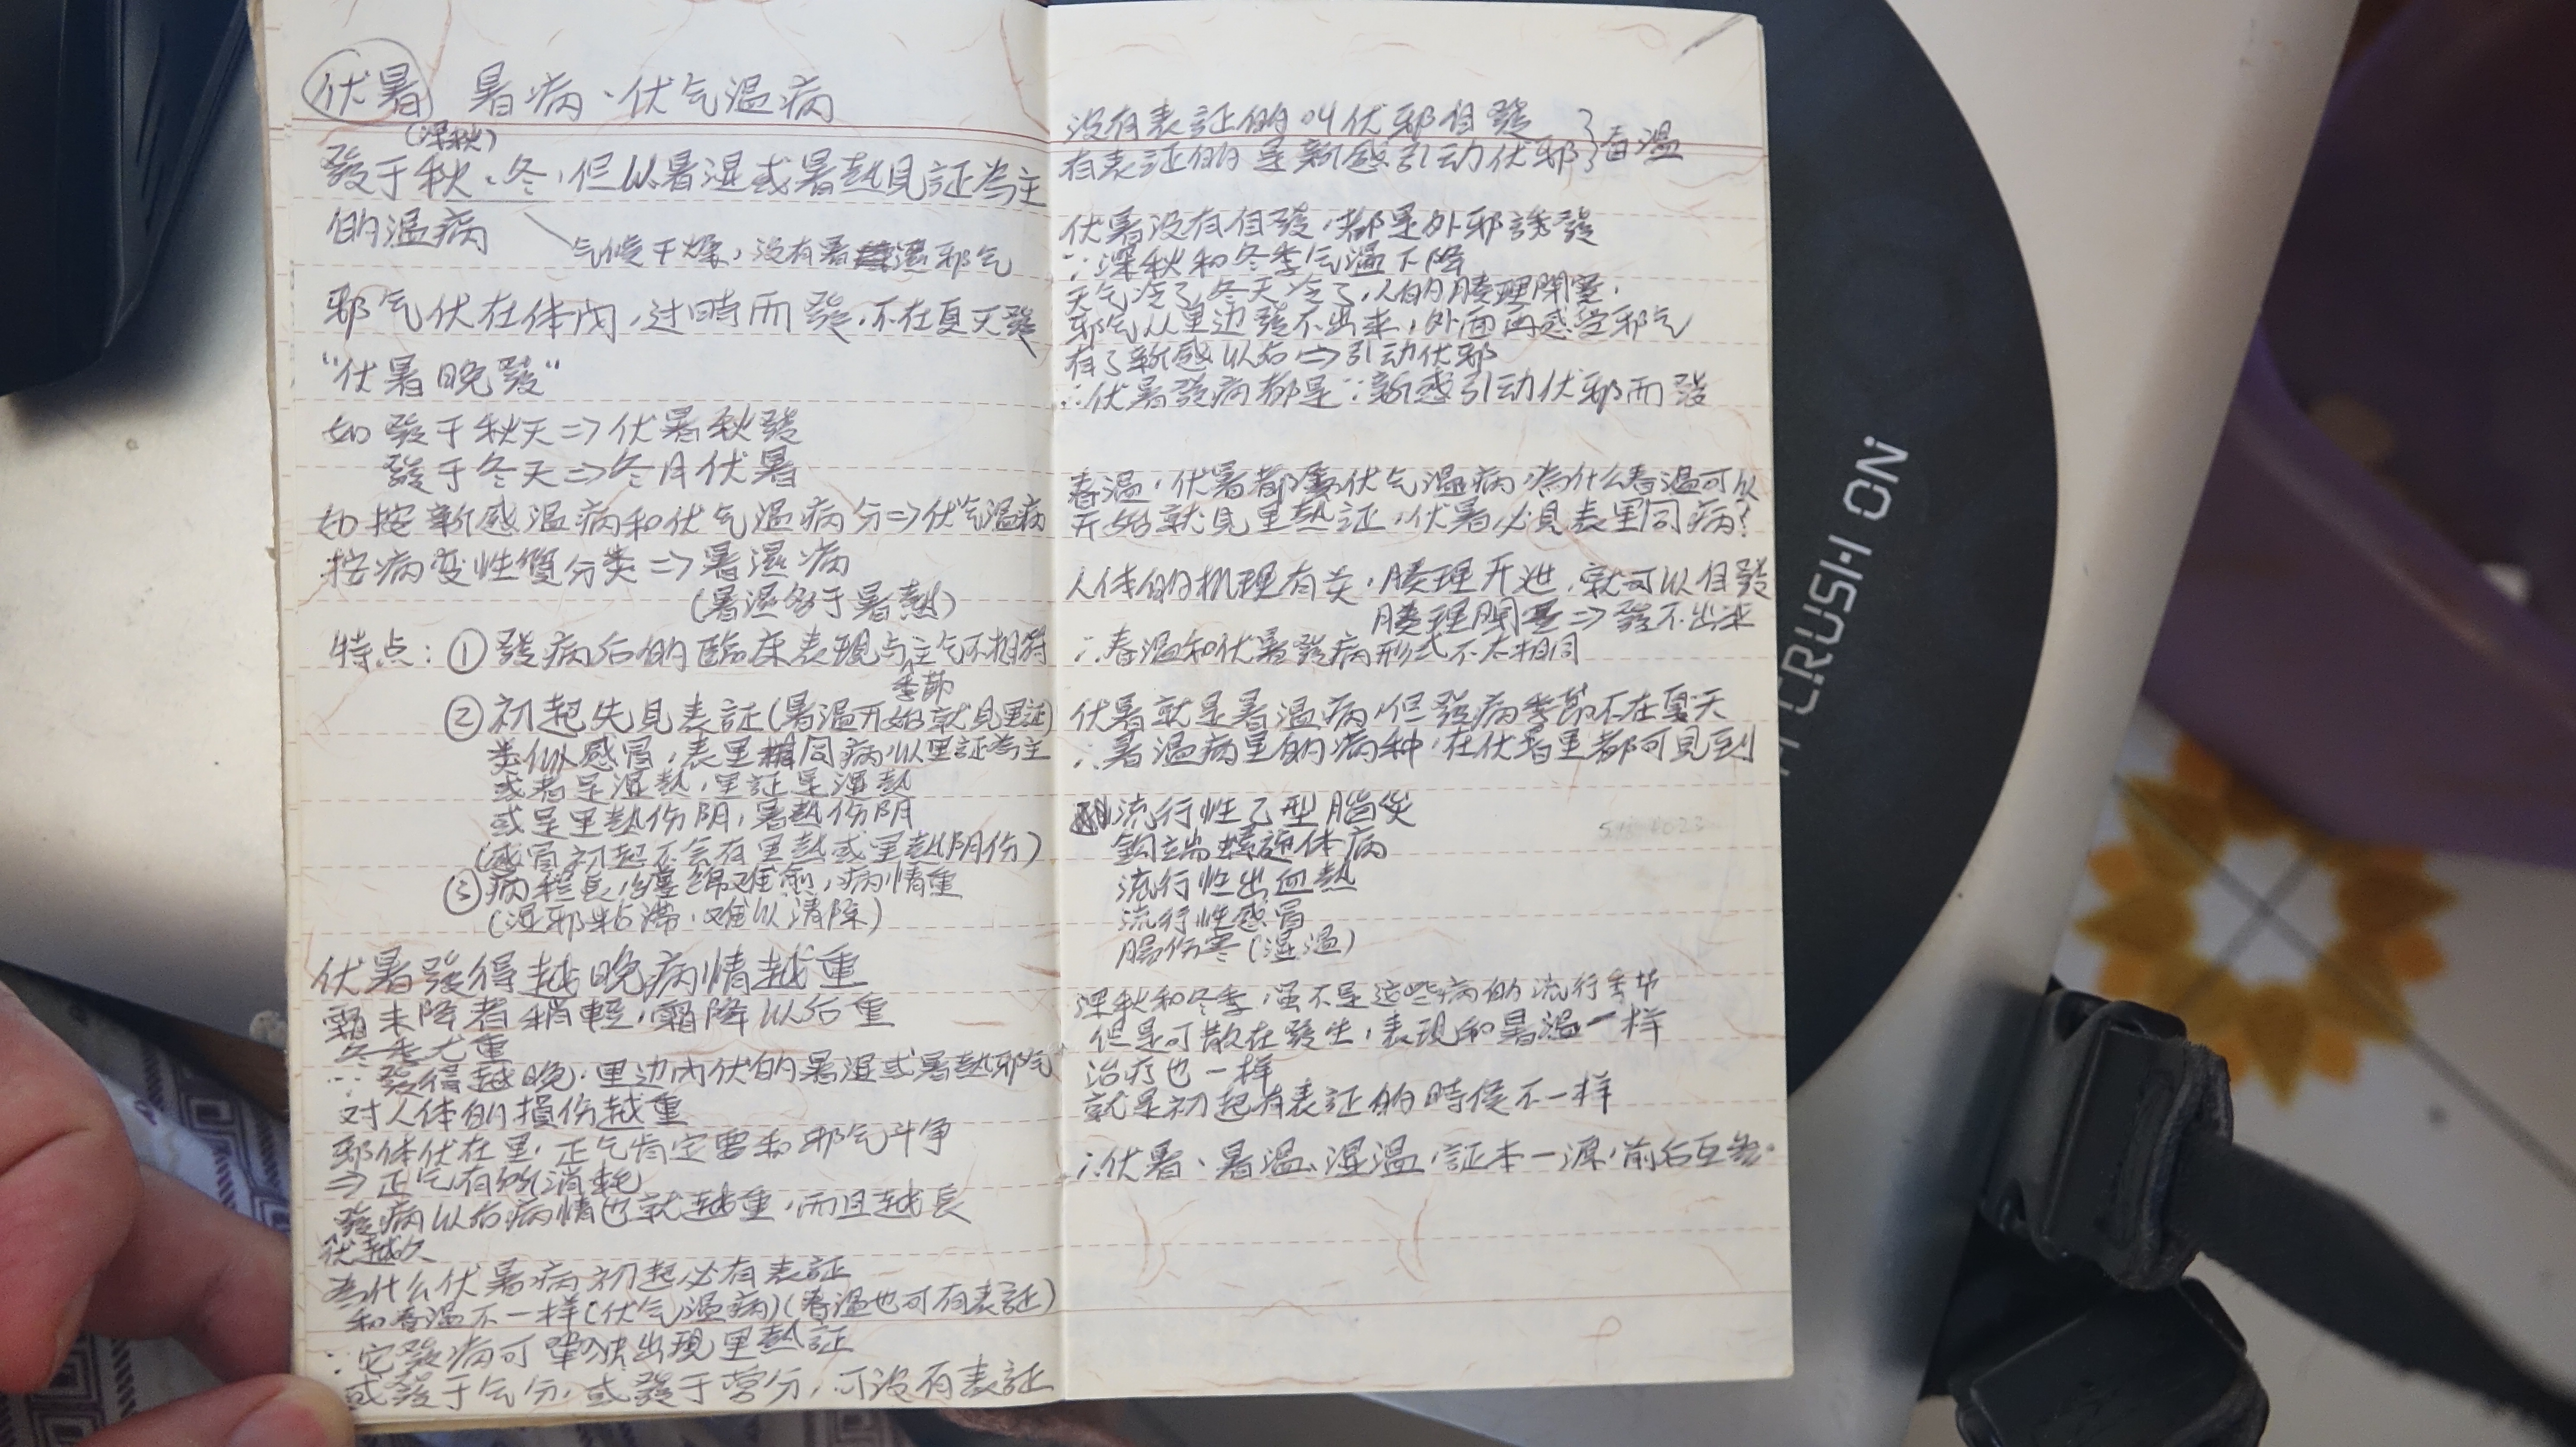 伏暑 暑病、伏气温病
(深秋)
發于秋、冬,但以暑湿或暑熱見証為主
的温病
气候干燥,没有暑湿邪气
邪气伏在体内,过時而發,不在夏天發
"伏暑晚發"
如發于秋天⇒伏暑秋發
發于冬天⇒冬月伏暑
如按新感温病和伏气温病分⇒伏气温病
按病变性質分类⇒暑濕病
(暑湿多于暑熱)
特点:①發病后的臨床表現与主气不相符
季節
②初起先見表証(暑温开始就見里証)
类似感冒,表里相同病,以里証為主
或者是湿熱,里証是湿熱
或是里熱伤阴,暑熱伤阴
(感冒初起不会有里熱或里熱阴伤)
③病程長,纏綿难愈,病情重
(湿邪粘滞,难以清除)
伏暑發得越晚病情越重
霜未降者稍輕,霜降以后重
冬季尤重
∵發得越晚,里边内伏的暑湿或暑熱邪气
对人体的損伤越重
邪体伏在里,正气肯定要和邪气斗争
⇒正气有所消耗
發病以后病情也就越重,而且越長
伏越久
為什么伏暑病初起必有表証
和春温不一样(伏气温病)(春温也可有表証)
∵它發病可單独出現里熱証
或發于气分,或發于营分,可没有表証
没有表証的叫伏邪自發
有表証的是新感引动伏邪 } 春温
伏暑没有自發,都是外邪誘發
∵深秋和冬季气温下降
天气冷了,冬天冷了,人的腠理閉塞,
邪气从里边發不出来,外面再感受邪气
有了新感以后⇒引动伏邪
∴伏暑發病都是∵新感引动伏邪而發
春温,伏暑都屬伏气温病,為什么春温可以
开始就見里熱証,伏暑必見表里同病?
人体的机理有关,腠理开泄,就可以自發
腠理閉塞⇒發不出来
∴春温和伏暑發病形式不太相同
伏暑就是暑温病,但發病季節不在夏天
∴暑温病里的病种,在伏暑里都可見到
流行性乙型腦炎
鈎端螺旋体病
流行性出血熱
流行性感冒
腸伤寒(湿温)
深秋和冬季,虽不是这些病的流行季节
但是可散在發生,表現和暑温一样
治疗也一样
就是初起有表証的時候不一样
∴伏暑、暑温、湿温,証本一源,前后互参.
CRUSH ON